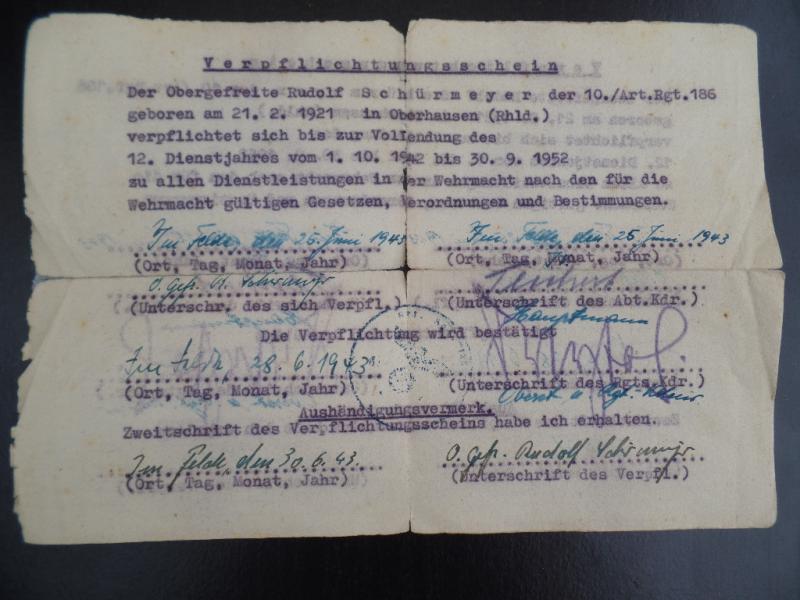 Verpflichtungsschein
Der Obergefreite Rudolf Schürmeyer der 10./Art.Rgt.186
geboren am 21. 2. 1921 in Oberhausen (Rhld.)
verpflichtet sich bis zur Vollendung des
12. Dienstjahres vom 1. 10. 1942 bis 30. 9. 1952
zu allen Dienstleistungen in der Wehrmacht nach den für die
Wehrmacht gültigen Gesetzen, Verordnungen und Bestimmungen.
Im Felde, den 25. Juni 1943 Im Felde, den 25. Juni 1943
(Ort, Tag, Monat, Jahr) (Ort, Tag, Monat, Jahr)
O.gefr.
(Unterschr. des sich Verpfl.) (Unterschrift des Abt.Kdr.)
Hauptmann
Die Verpflichtung wird bestätigt
Im Felde, 28. 6. 1943
(Ort, Tag, Monat, Jahr) (Unterschrift des Rgts.Kdr.)
Oberst u. Rgt.
Aushändigungsvermerk.
Zweitschrift des Verpflichtungsscheins habe ich erhalten.
Im Felde, den 30.6.43. O.gefr. Rudolf
(Ort, Tag, Monat, Jahr) (Unterschrift des Verpfl.)